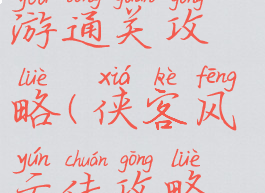 yóu tōng guān gōng
游通关攻
lüè xiá kè fēng
略(侠客风
yún chuán gōng lüè
云传攻略